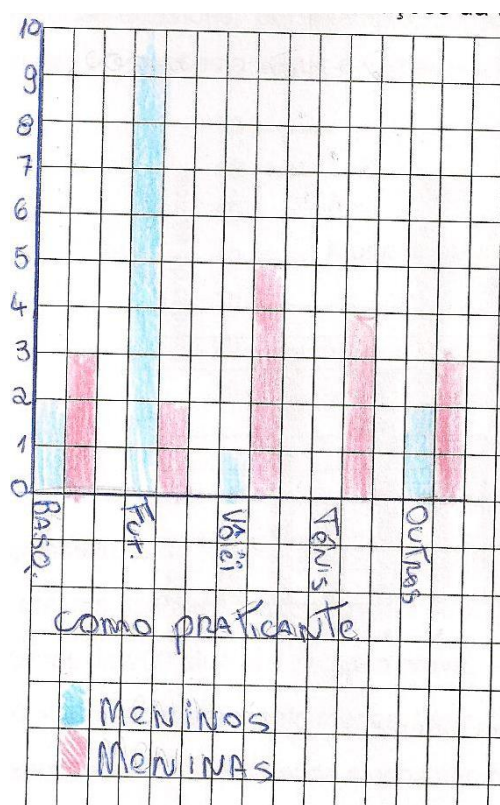 10
9
8
7
6
5
4
3
2
1
0
BASQ.
FUT.
VÔLEI
TÊNIS
OUTROS
COMO PRATICANTE
MENINOS
MENINAS